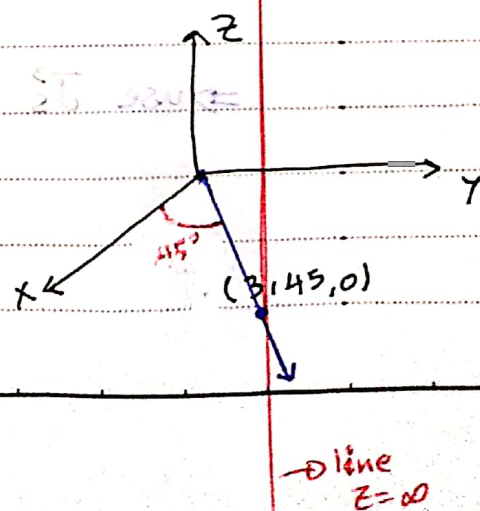 Z
Y
45°
(3,45,0)
X
→ line
z=∞